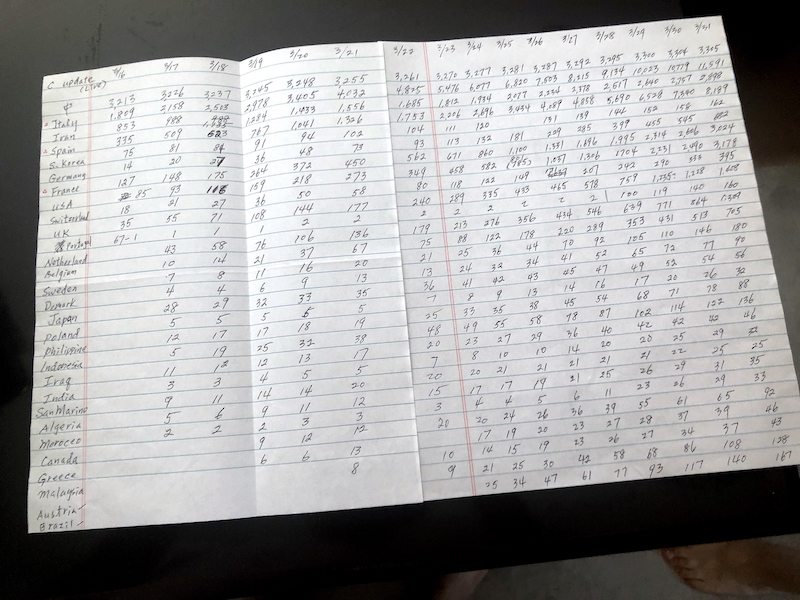 C update 3/16 3/17 3/18 3/19 3/20 3/21 3/22 3/23 3/24 3/25 3/26 3/27 3/28 3/29 3/30 3/31
(Live)
中 3,213 3,226 3,237 3,245 3,248 3,255 3,261 3,270 3,277 3,281 3,287 3,292 3,295 3,300 3,304 3,305
Italy 1,809 2,158 2,503 2,978 3,405 4,032 4,825 5,476 6,077 6,820 7,503 8,215 9,134 10,023 10,779 11,591
Iran 853 988 1284 1,433 1,556 1,685 1,812 1,934 2,077 2,234 2,378 2,517 2,640 2,757 2,898
Spain 335 509 623 767 1,041 1,326 1,753 2,206 2,696 3,434 4,089 4,858 5,690 6,528 7,340 8,189
S. Korea 75 81 84 91 94 102 104 111 120 131 139 144 152 158 162
Germany 14 20 27 36 48 73 93 113 132 181 229 285 399 455 545 682
France 127 148 175 264 372 450 562 671 860 1,100 1,331 1,696 1,995 2,314 2,606 3,024
USA 85 93 116 159 218 273 349 458 582 785 1,037 1,306 1704 2,231 2,490 3,178
Switzerland 18 21 27 36 50 58 80 118 122 149 207 242 290 333 395
UK 35 55 71 108 144 177 240 289 335 433 465 578 759 1,228 1,408
Portugal 67-1 1 1 1 2 2 2 2 2 2 2 2 100 119 140 160
Netherland 43 58 76 106 136 179 213 276 356 434 546 639 771 864 1,039
Belgium 10 14 21 37 67 75 88 122 178 220 289 353 431 513 705
Sweden 7 8 11 16 20 21 25 36 44 70 92 105 110 146 180
Demork 4 4 6 9 13 13 24 32 34 41 52 65 72 77 90
Japan 28 29 32 33 35 36 41 42 43 45 47 49 52 54 56
Poland 5 5 5 5 5 7 8 9 13 14 16 17 20 26 32
Philippine 12 17 17 18 19 25 33 35 38 45 54 68 71 78 88
Indonesia 5 19 25 32 38 48 49 55 58 78 87 102 114 122 136
Iraq 11 12 12 13 17 20 23 27 29 36 40 42 42 42 46
India 3 3 4 5 5 7 8 10 10 14 20 20 25 29 32
San Marino 9 11 14 14 20 20 20 21 21 21 21 21 22 25 25
Algeria 5 6 9 11 12 15 17 17 19 21 25 26 29 31 35
Morocco 2 2 2 3 3 3 4 4 5 6 11 23 26 29 33
Canada 9 12 12 20 20 24 26 36 39 55 61 65 92
Greece 6 6 13 17 19 20 23 27 28 37 39 46
Malaysia 8 10 14 15 19 23 26 27 34 37 43
Austria 9 21 25 30 42 58 68 86 108 128
Brazil 25 34 47 61 77 93 117 140 167